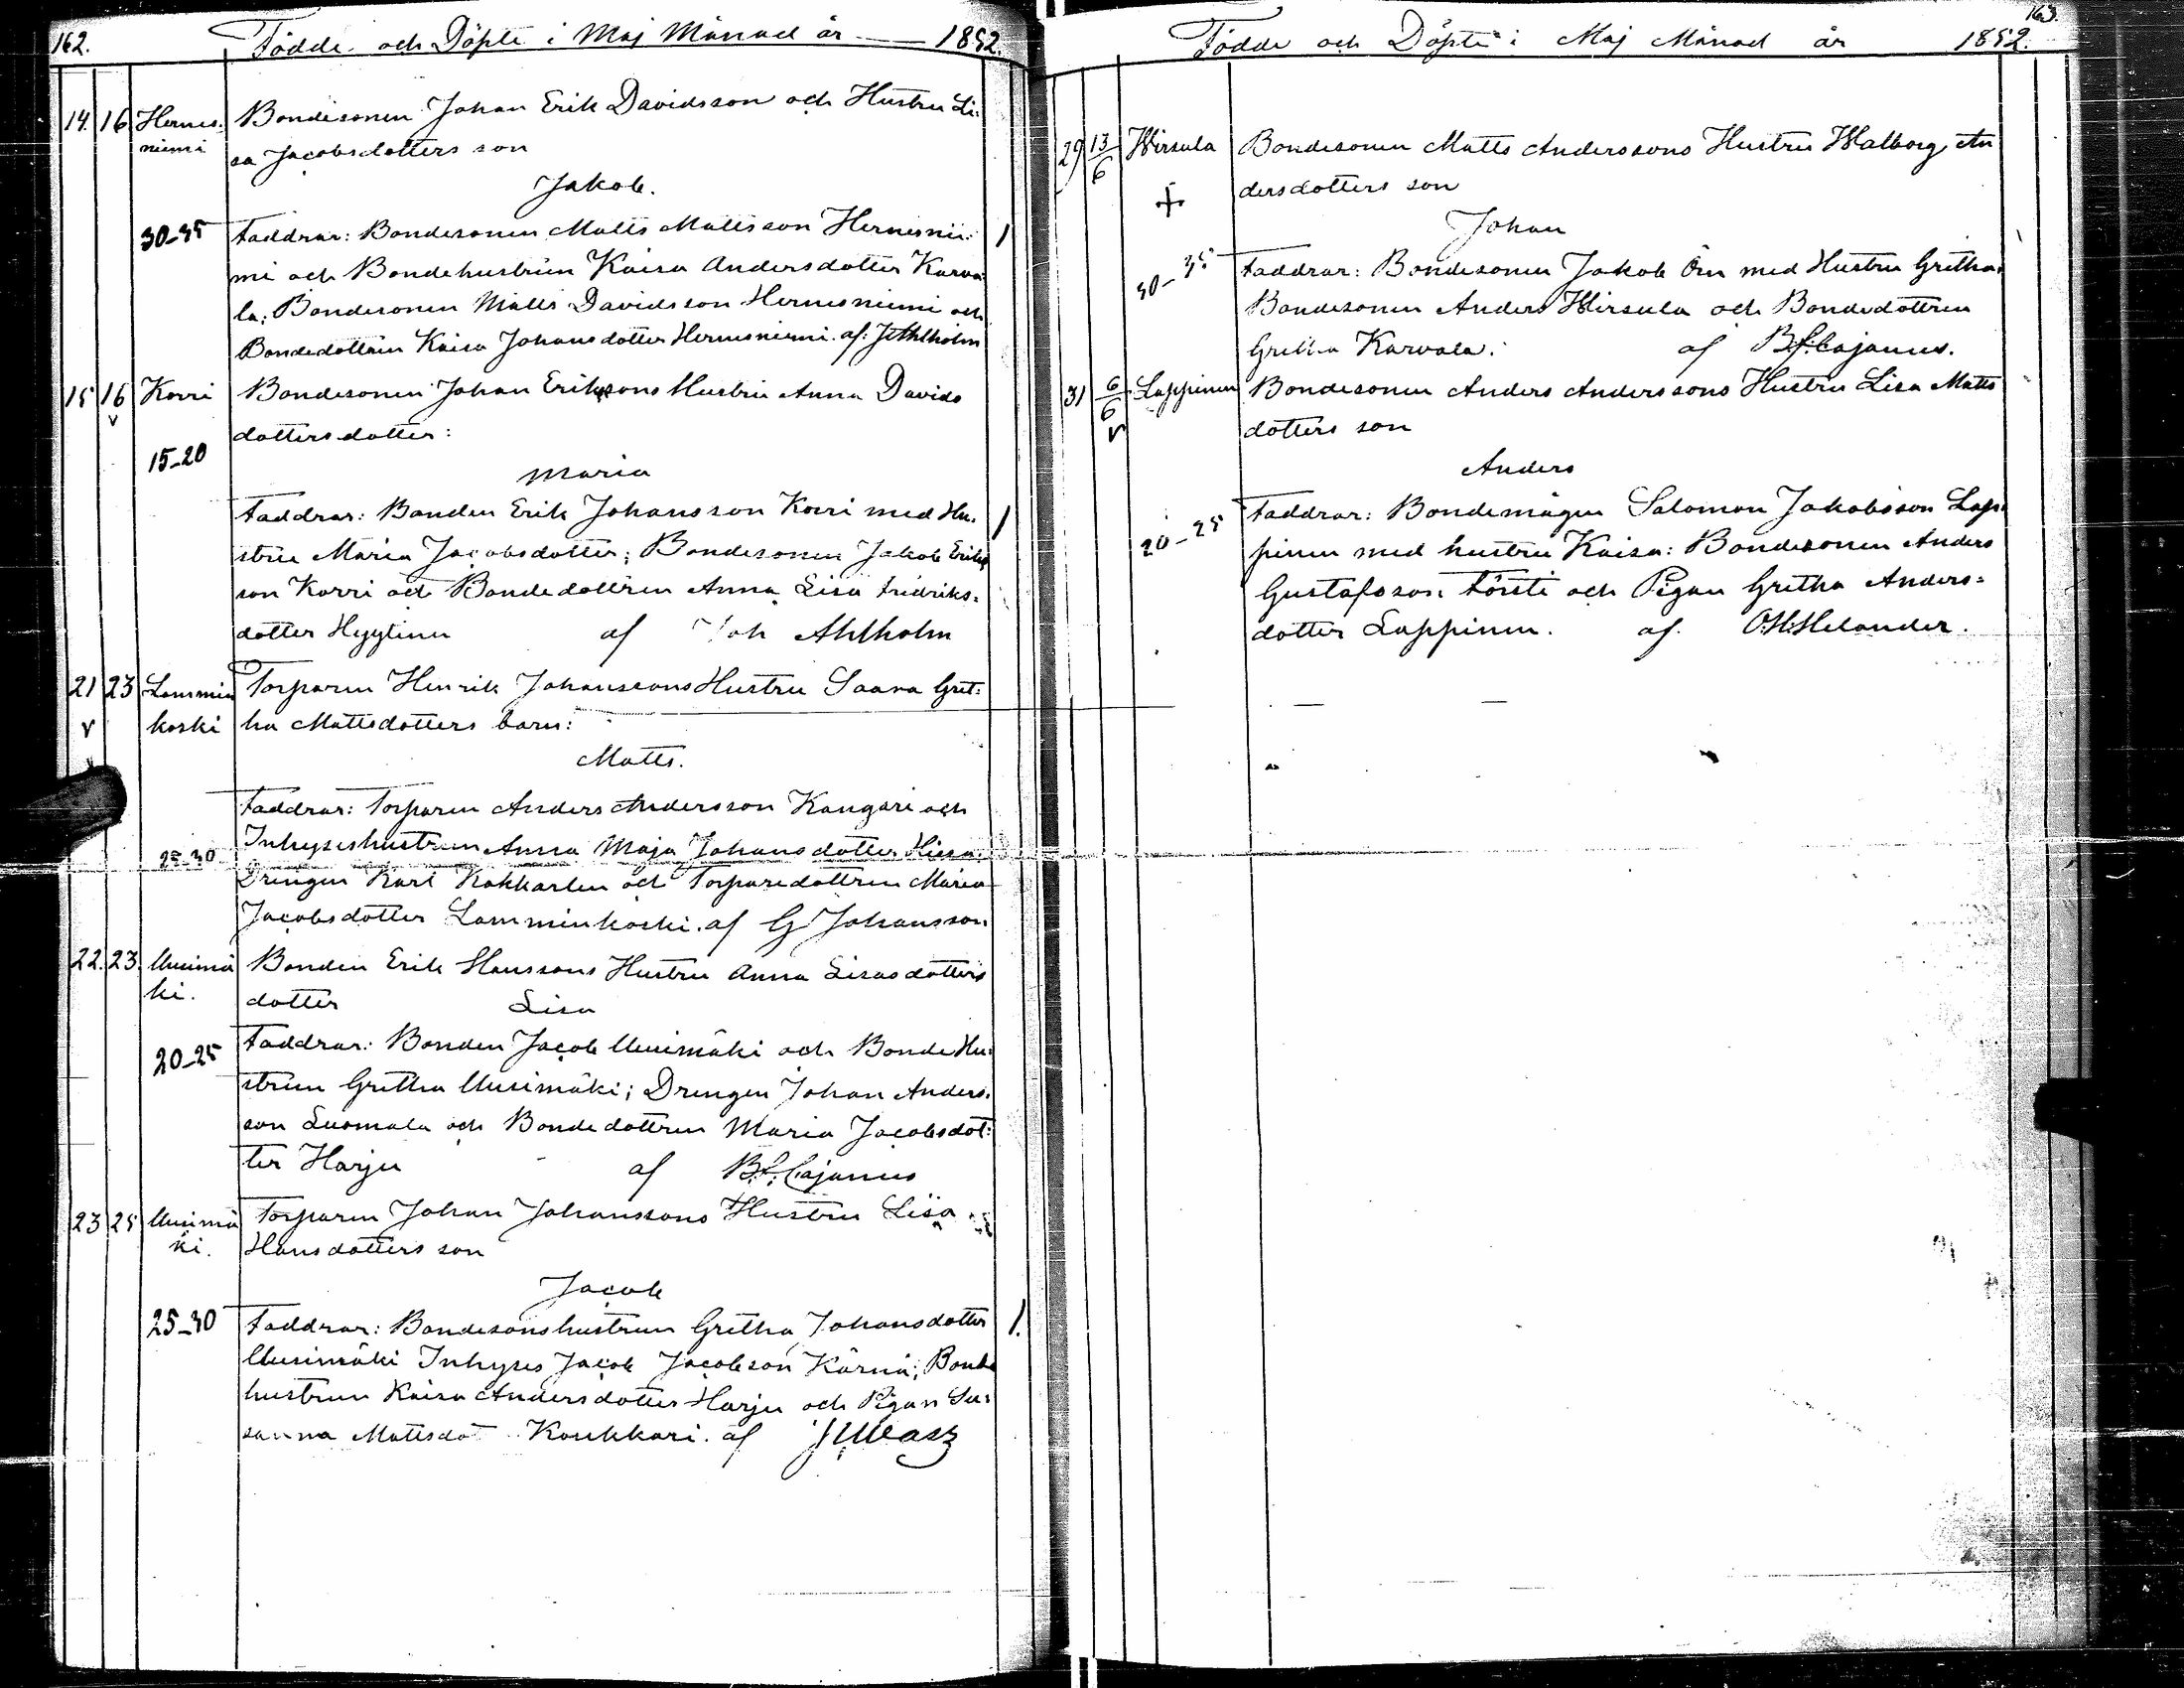 162. Födde och Döpte i Maj Månad år — 1852.
14. 16. Hernes- Bondesonen Johan Erik Davidsson och Hustru Li-
niemi sa Jacobsdotters son
Jakob.
30-35 Faddrar: Bondesonen Matts Mattsson Hernesnie-
mi och Bondehustrun Kaisa Andersdotter Karva-
la; Bondesonen Matts Davidsson Hernesniemi och
Bondedottren Kaisa Johansdotter Hernesniemi. af: J Ahlholm
15 16 Korri Bondesonen Johan Erikssons Hustru Anna Davids
v dotters dotter:
15-20
Maria
Faddrar: Bonden Erik Johansson Korri med Hu-
stru Maria Jacobsdotter; Bondesonen Jakob Eriks
son Korri och Bondedottren Anna Lisa Fridriks-
dotter Hyytinen af Joh Ahlholm
21 23 Lammin Torparen Henrik Johanssons Hustru Saara Gret-
v koski ha Mattsdotters barn:
Matts.
Faddrar: Torparen Anders Andersson Kangari och
25-30 Inhyseshustrun Anna Maja Johansdotter Hiesa;
Drengen Karl Kokkarlen och Torparedottren Maria
Jacobsdotter Lamminkoski. af G Johansson
22. 23. Uusimä Bonden Erik Hanssons Hustru Anna Lisasdotters
ki. dotter Lisa
20-25 Faddrar: Bonden Jacob Uusimäki och BondeHu-
strun Gretha Uusimäki; Drengen Johan Anders-
son Luomala och Bondedottren Maria Jacobsdot-
ter Harju af B.f. Cajanus
23 25 Uusimä Torparen Johan Johanssons Hustru Lisa
ki. Hansdotters son
Jacob
25-30 Faddrar: Bondesonshustrun Gretha Johansdotter
Uusimäki Inhyses Jacob Jacobson Kärnä; Bonde
hustrun Kaisa Andersdotter Harju och Pigan Su-
sanna Mattsdot Koukkari. af
163.
Födde och Döpte i Maj Månad år 1852.
29 13/6 Wirsula Bondesonen Matts Anderssons Hustru Walborg An
+ dersdotters son
Johan
30-35 Faddrar: Bondesonen Jakob Örn med Hustru Gretha;
Bondesonen Anders Wirsula och Bondedottren
Gretha Karvala. af B.f. Cajanus.
31 6/6 Lappinen Bondesonen Anders Anderssons Hustru Lisa Matts
v dotters son
Anders
20-25 Faddrar: Bondemågen Salomon Jakobsson Lap-
pinen med hustru Kaisa: Bondesonen Anders
Gustafsson Försti och Pigan Gretha Anders-
dotter Lappinen. af. O.H. Helander.